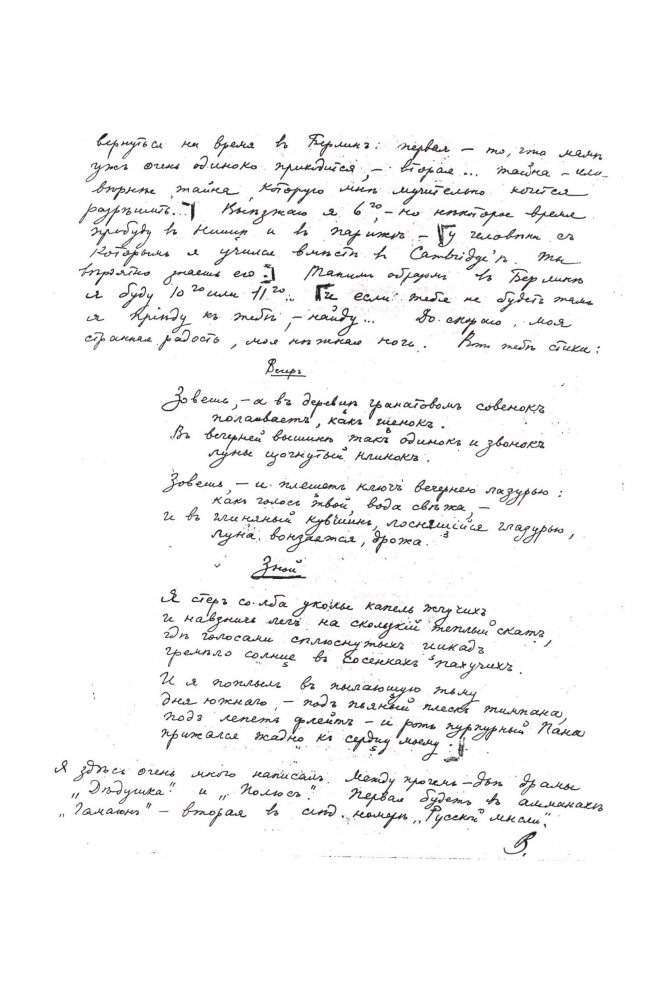 вернуться на время въ Берлинъ: первая – то, что мамѣ
ужъ очень одиноко приходится, – вторая... тайна –
тайна, которую мнѣ мучительно хочется
разрѣшить...] Выѣзжаю я 6го, – но нѣкоторое время
пробуду въ Ниццѣ и въ Парижѣ – [у человѣка съ
которымъ я учился вмѣстѣ въ Cambridge'ѣ. Ты
вѣроятно знаешь его:] Такимъ образомъ въ Берлинѣ
я буду 10го или 11го... [и если тебя не будетъ тамъ
я приѣду къ тебѣ, – найду... До скораго, моя
странная радость, моя нѣжная ночь. Вотъ тебѣ стихи:
Вечеръ
Зовешь, – а въ деревцѣ гранатовомъ совенокъ
полаиваетъ, какъ щенокъ.
Въ вечерней вышинѣ такъ одинокъ и звонокъ
луны изогнутый клинокъ.
Зовешь, – и плещетъ ключъ вечернею лазурью:
какъ голосъ твой, вода свѣжа, –
и въ глиняный кувшинъ, лоснящійся глазурью,
луна вонзается, дрожа.
Зной
Я стеръ со лба уколы капель жгучихъ
и навзничь легъ на скользкій теплый скатъ,
гдѣ голосами сплюснутыхъ цикадъ
гремѣло солнце въ сосенкахъ пахучихъ.
И я поплылъ въ пылающую тьму
дня южнаго, – подъ пьяный плескъ тимпана,
подъ лепетъ флейтъ – и ротъ пурпурный Пана
прижался жадно къ сердцу моему.]
Я здѣсь очень много написалъ. Между прочимъ – двѣ драмы
„Дѣдушка" и „Полюсъ". Первая будетъ въ альманахѣ
„Гамаюнъ" – вторая въ слѣд. номерѣ „Русской мысли".
В.